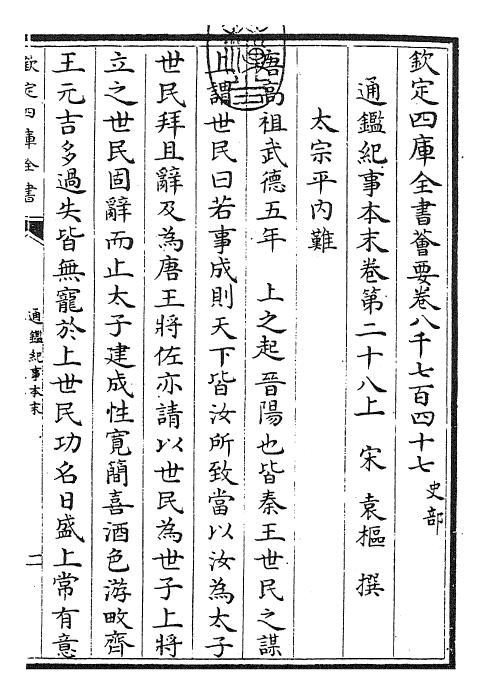 欽定四庫全書薈要卷八千七百四十七
史部
通鑑紀事本末卷第二十八上
宋 袁樞 撰
太宗平内難
唐高祖武德五年 上之起晉陽也皆秦王世民之謀
上謂世民曰若事成則天下皆汝所致當以汝為太子
世民拜且辭及為唐王將佐亦請以世民為世子上將
立之世民固辭而止太子建成性寬簡喜酒色游畋齊
王元吉多過失皆無寵於上世民功名日盛上常有意
欽定四庫全書
通鑑紀事本末